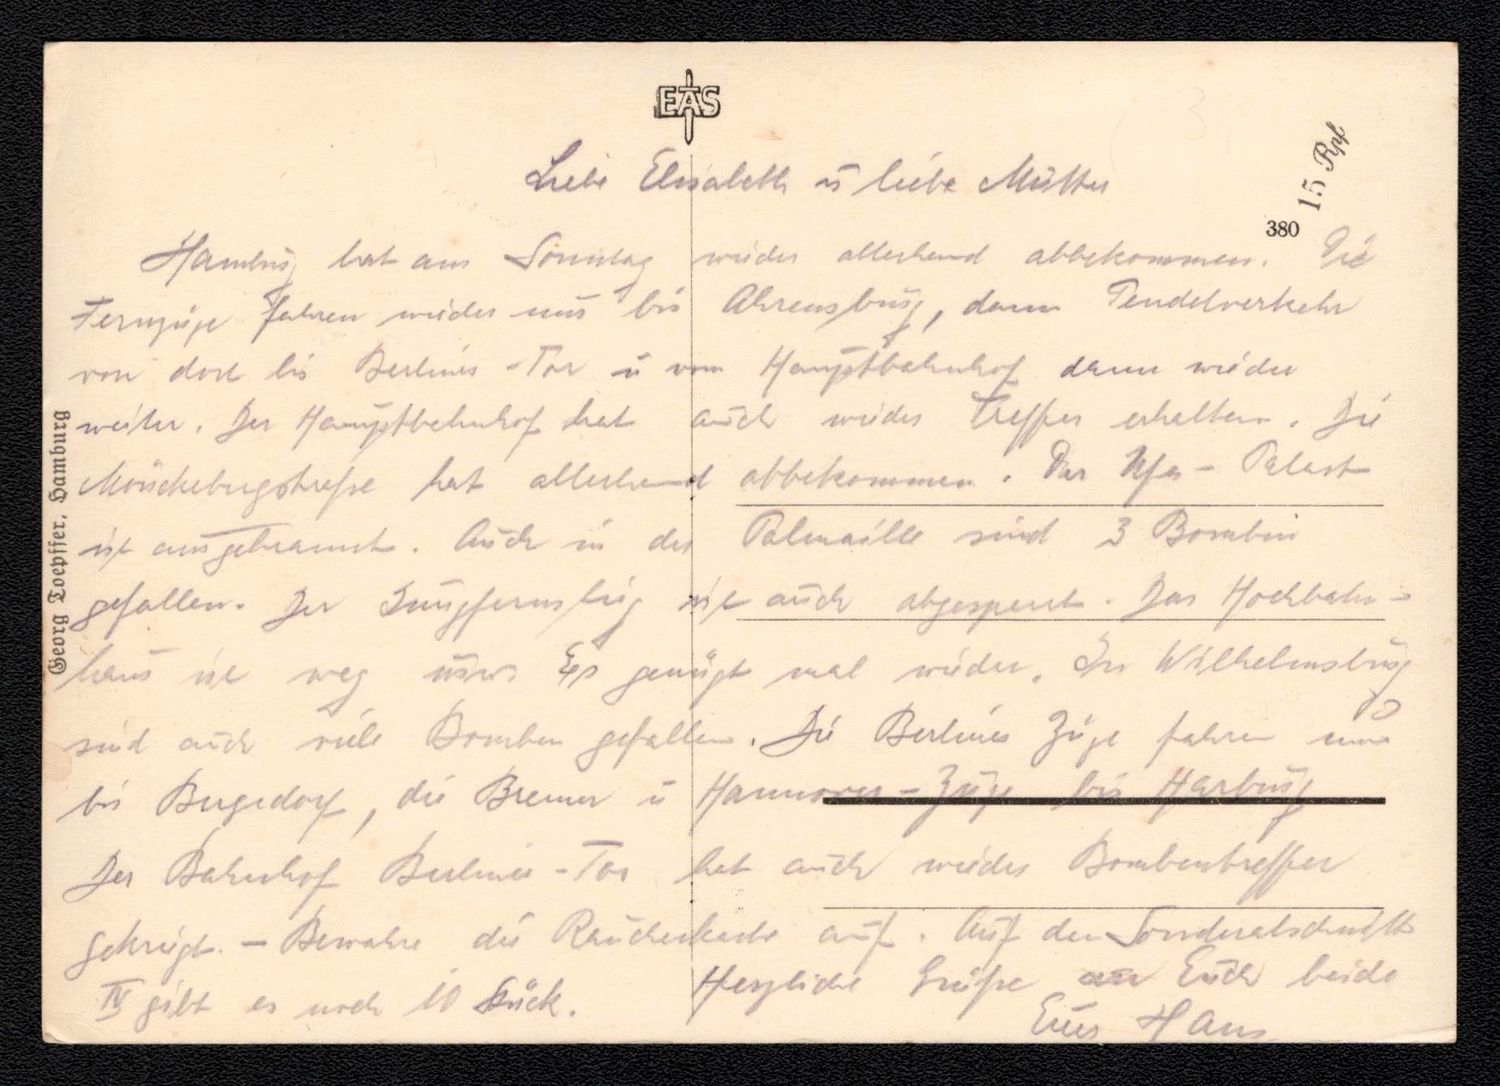 EAS
15 Rpf
380
Liebe Elisabeth u liebe Mutter
Hamburg hat am Sonntag wieder allerhand abbekommen. Die
Fernzüge fahren wieder nur bis Ahrensburg, dann Pendelverkehr
von dort bis Berliner-Tor u vom Hauptbahnhof dann wieder
weiter. Der Hauptbahnhof hat auch wieder Treffer erhalten. Die
Mönckebergstraße hat allerhand abbekommen. Der Ufa-Palast
ist ausgebrannt. Auch in der Palmaille sind 3 Bomben
gefallen. Der Jungfernstieg ist auch abgesperrt. Das Hochbahn-
haus ist weg usw. Es genügt mal wieder. In Wilhelmsburg
sind auch viele Bomben gefallen. Die Berliner Züge fahren nur
bis Bergedorf, die Bremer u Hannover-Züge bis Harburg
Der Bahnhof Berliner-Tor hat auch wieder Bombentreffer
gekriegt. - Bewahre die Raucherkarte auf. Auf den Sonderabschnitt
IV gibt es noch 10 Stück. Herzliche Grüße an Euch beide
Euer Hans
Georg Toepffer, Hamburg